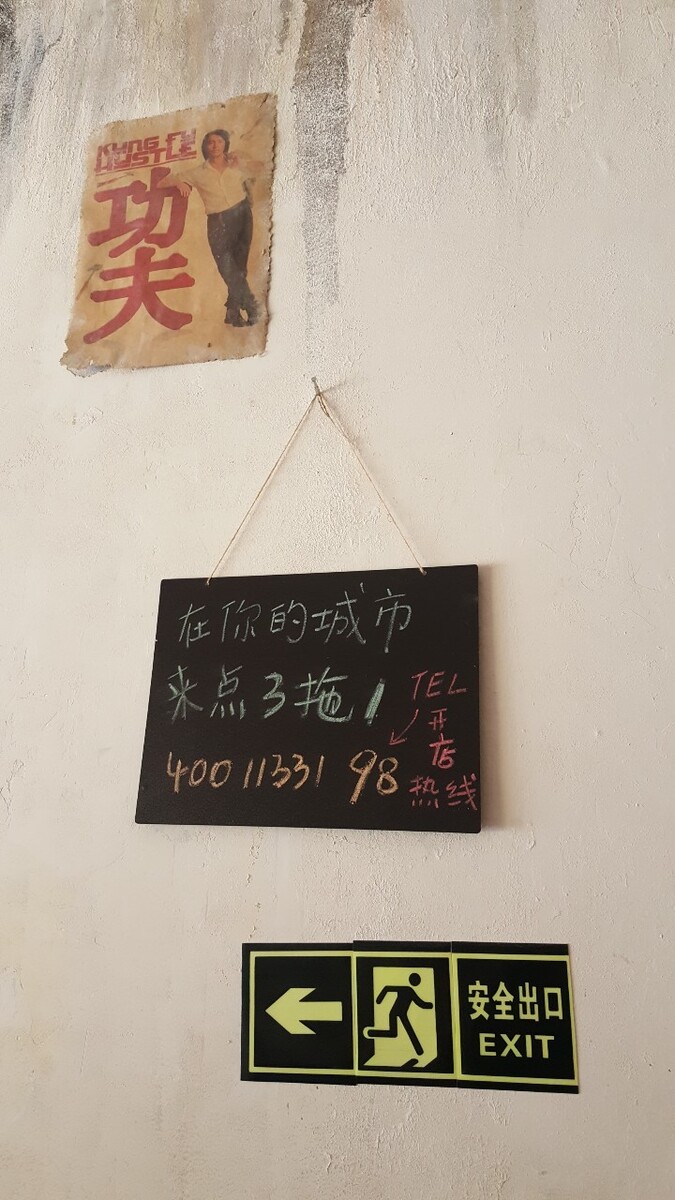 KUNG FU
HUSTLE
功
夫
在你的城市
来点3拖1
TEL
开
店
热线
40011331 98
安全出口
EXIT